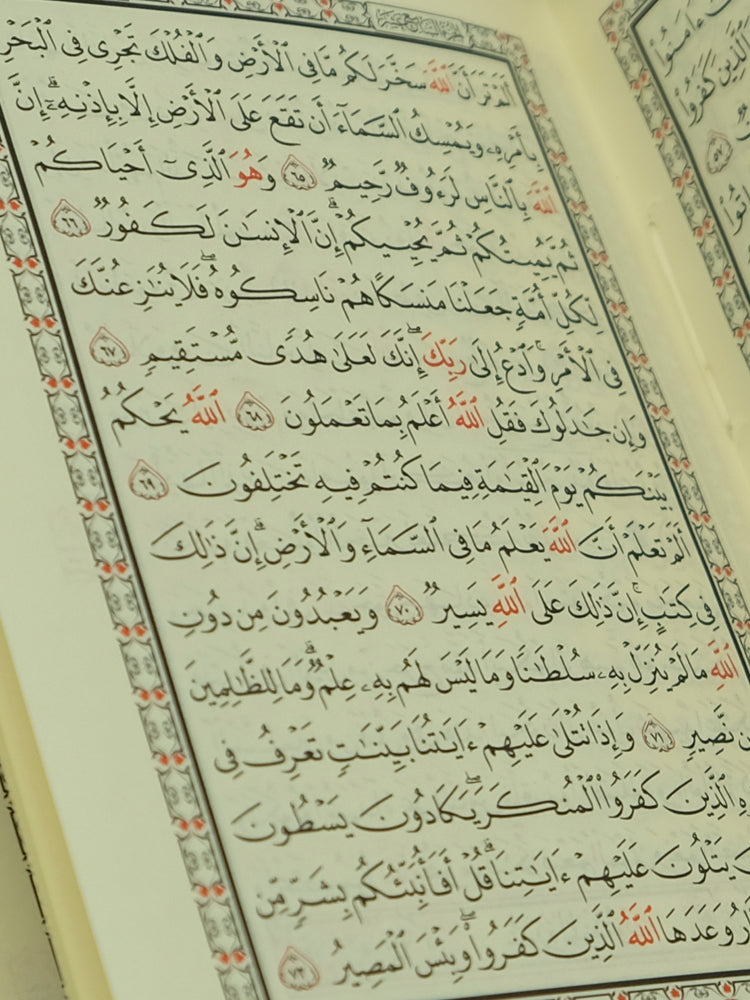 أَلَمْ تَرَ أَنَّ ٱللَّهَ سَخَّرَ لَكُم مَّا فِى ٱلْأَرْضِ وَٱلْفُلْكَ تَجْرِى فِى ٱلْبَحْرِ
بِأَمْرِهِۦ وَيُمْسِكُ ٱلسَّمَآءَ أَن تَقَعَ عَلَى ٱلْأَرْضِ إِلَّا بِإِذْنِهِۦٓ ۗ إِنَّ
ٱللَّهَ بِٱلنَّاسِ لَرَءُوفٌ رَّحِيمٌ ﴿٦٥﴾ وَهُوَ ٱلَّذِىٓ أَحْيَاكُمْ
ثُمَّ يُمِيتُكُمْ ثُمَّ يُحْيِيكُمْ ۗ إِنَّ ٱلْإِنسَٰنَ لَكَفُورٌ ﴿٦٦﴾
لِّكُلِّ أُمَّةٍ جَعَلْنَا مَنسَكًا هُمْ نَاسِكُوهُ ۖ فَلَا يُنَٰزِعُنَّكَ
فِى ٱلْأَمْرِ ۚ وَٱدْعُ إِلَىٰ رَبِّكَ ۖ إِنَّكَ لَعَلَىٰ هُدًى مُّسْتَقِيمٍ ﴿٦٧﴾
وَإِن جَٰدَلُوكَ فَقُلِ ٱللَّهُ أَعْلَمُ بِمَا تَعْمَلُونَ ﴿٦٨﴾ ٱللَّهُ يَحْكُمُ
بَيْنَكُمْ يَوْمَ ٱلْقِيَٰمَةِ فِيمَا كُنتُمْ فِيهِ تَخْتَلِفُونَ ﴿٦٩﴾
أَلَمْ تَعْلَمْ أَنَّ ٱللَّهَ يَعْلَمُ مَا فِى ٱلسَّمَآءِ وَٱلْأَرْضِ ۗ إِنَّ ذَٰلِكَ
فِى كِتَٰبٍ ۚ إِنَّ ذَٰلِكَ عَلَى ٱللَّهِ يَسِيرٌ ﴿٧٠﴾ وَيَعْبُدُونَ مِن دُونِ
ٱللَّهِ مَا لَمْ يُنَزِّلْ بِهِۦ سُلْطَٰنًا وَمَا لَيْسَ لَهُم بِهِۦ عِلْمٌ ۗ وَمَا لِلظَّٰلِمِينَ
نَّصِيرٍ ﴿٧١﴾ وَإِذَا تُتْلَىٰ عَلَيْهِمْ ءَايَٰتُنَا بَيِّنَٰتٍ تَعْرِفُ فِى
ٱلَّذِينَ كَفَرُوا۟ ٱلْمُنكَرَ ۖ يَكَادُونَ يَسْطُونَ
يَتْلُونَ عَلَيْهِمْ ءَايَٰتِنَا ۗ قُلْ أَفَأُنَبِّئُكُم بِشَرٍّ مِّن
وَعَدَهَا ٱللَّهُ ٱلَّذِينَ كَفَرُوا۟ ۖ وَبِئْسَ ٱلْمَصِيرُ ﴿٧٢﴾
ءَامَنُوا۟
ٱلَّذِينَ كَفَرُوا۟
﴿٥٧﴾